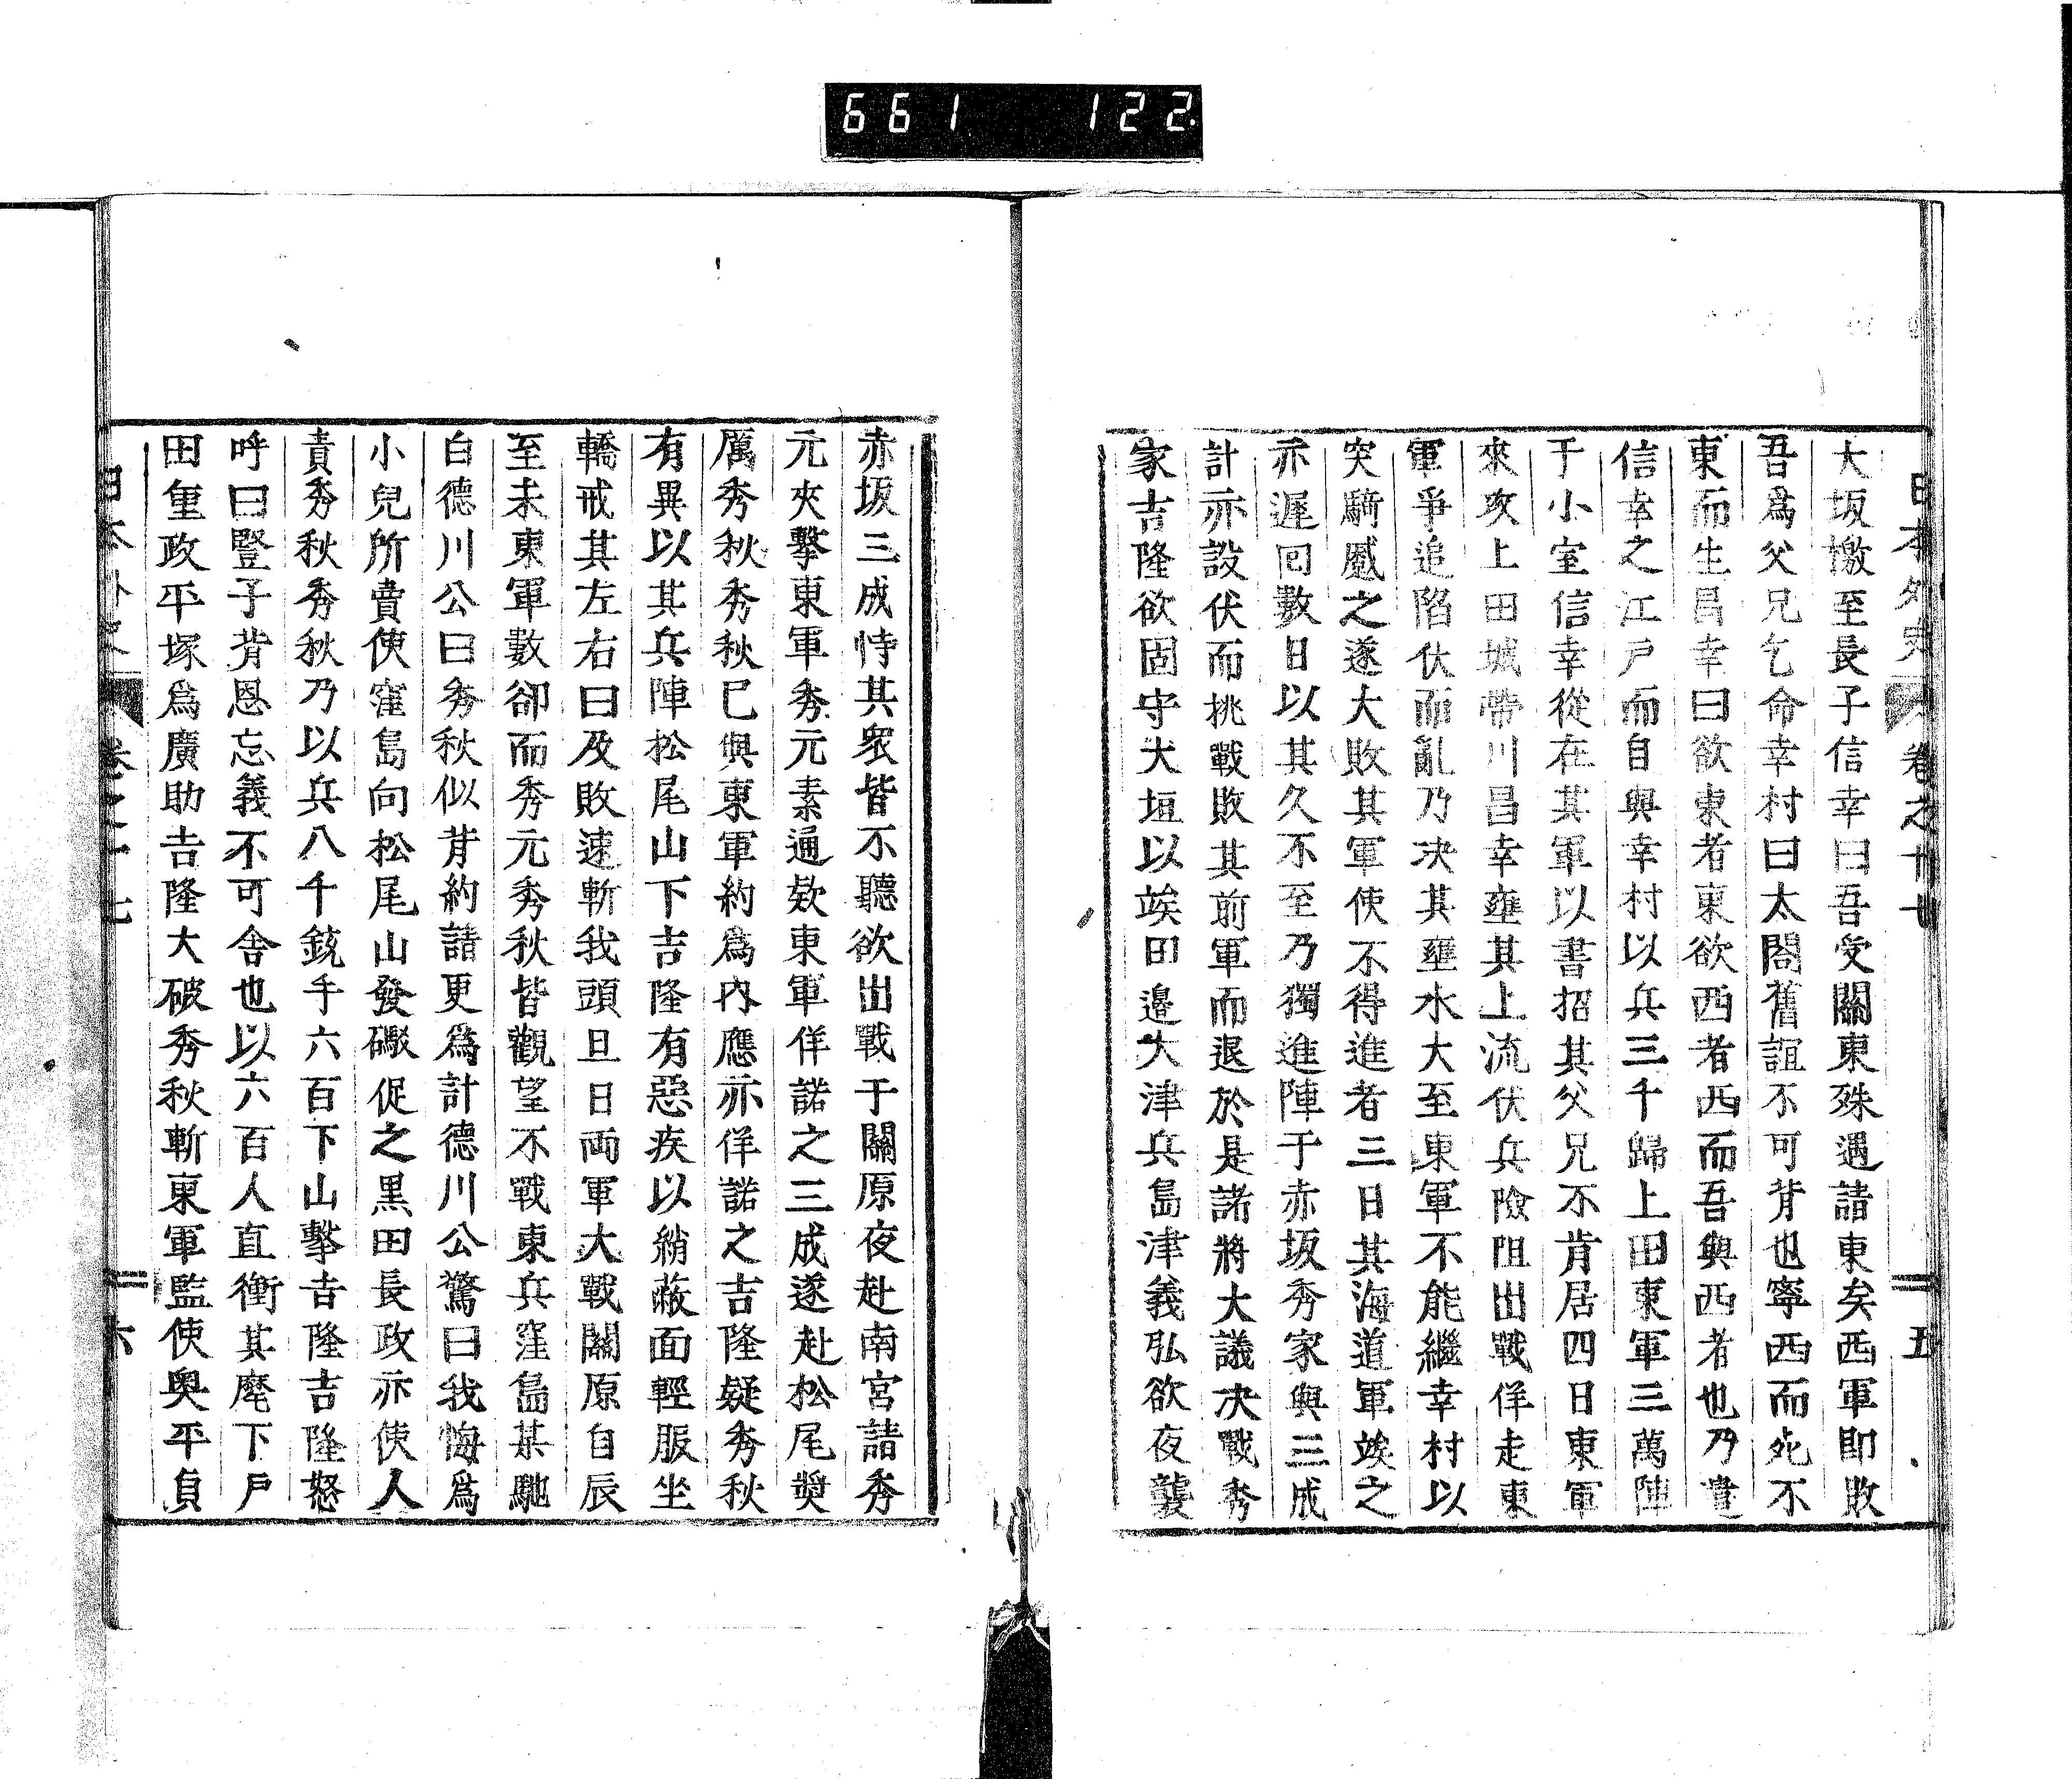 661 122
日本外史 卷之十七 五
大坂檄至長子信幸曰吾受關東殊遇請東矣西軍即敗
吾爲父兄乞命幸村曰太閤舊誼不可背也寧西而死不
東而生昌幸曰欲東者東欲西者西而吾與西者也乃遣
信幸之江戸而自與幸村以兵三千歸上田東軍三萬陣
于小室信幸從在其軍以書招其父兄不肯居四日東軍
來攻上田城帶川昌幸壅其上流伏兵險阻出戰佯走東
軍爭追陷伏而亂乃决其壅水大至東軍不能繼幸村以
突騎蹙之遂大敗其軍使不得進者三日其海道軍竢之
亦遲回數日以其久不至乃獨進陣于赤坂秀家與三成
計亦設伏而挑戰敗其前軍而退於是諸將大議决戰秀
家吉隆欲固守大垣以竢田邉大津兵島津義弘欲夜襲
赤坂三成恃其衆皆不聽欲出戰于關原夜赴南宮請秀
元夾擊東軍秀元素通欵東軍佯諾之三成遂赴松尾奬
厲秀秋秀秋已與東軍約爲内應亦佯諾之吉隆疑秀秋
有異以其兵陣松尾山下吉隆有惡疾以綃蔽面輕服坐
轎戒其左右曰及敗速斬我頭旦日両軍大戰關原自辰
至未東軍數卻而秀元秀秋皆觀望不戰東兵窪島某馳
白德川公曰秀秋似背約請更爲計德川公驚曰我悔爲
小兒所賣使窪島向松尾山發礮促之黒田長政亦使人
責秀秋秀秋乃以兵八千銃手六百下山擊吉隆吉隆怒
呼曰豎子背恩忘義不可舍也以六百人直衝其麾下戸
田重政平塚爲廣助吉隆大破秀秋斬東軍監使奥平貞
日本外史 卷之十七 六